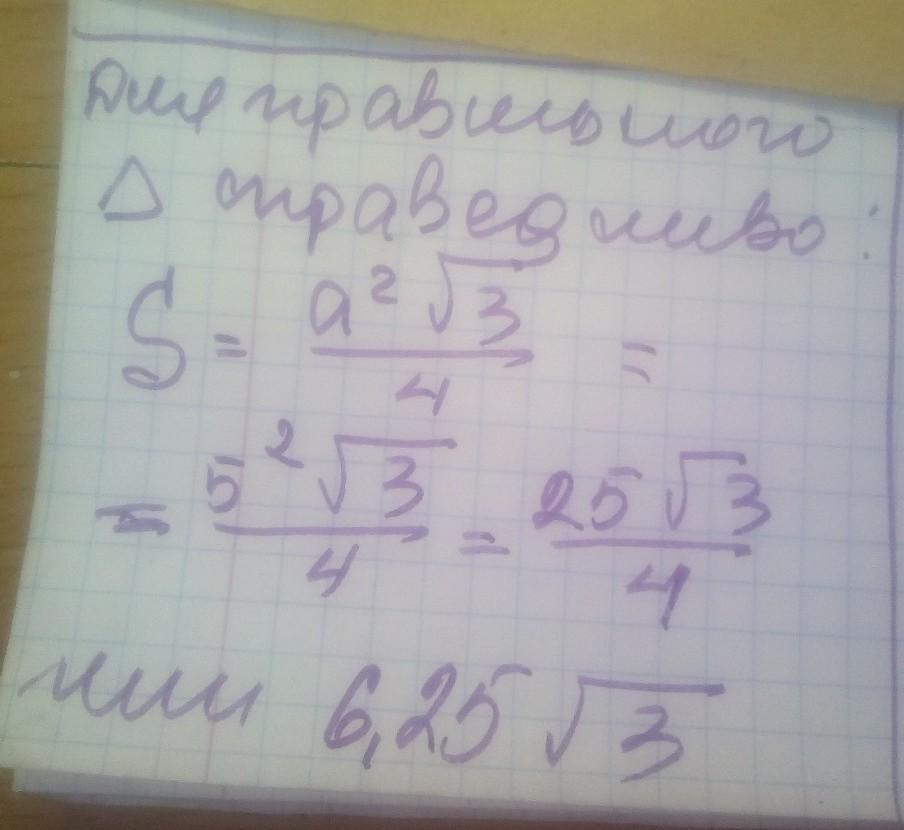 Для правильного
Δ справедливо:
S = a²√3/4 =
= 5²√3/4 = 25√3/4
или 6,25√3